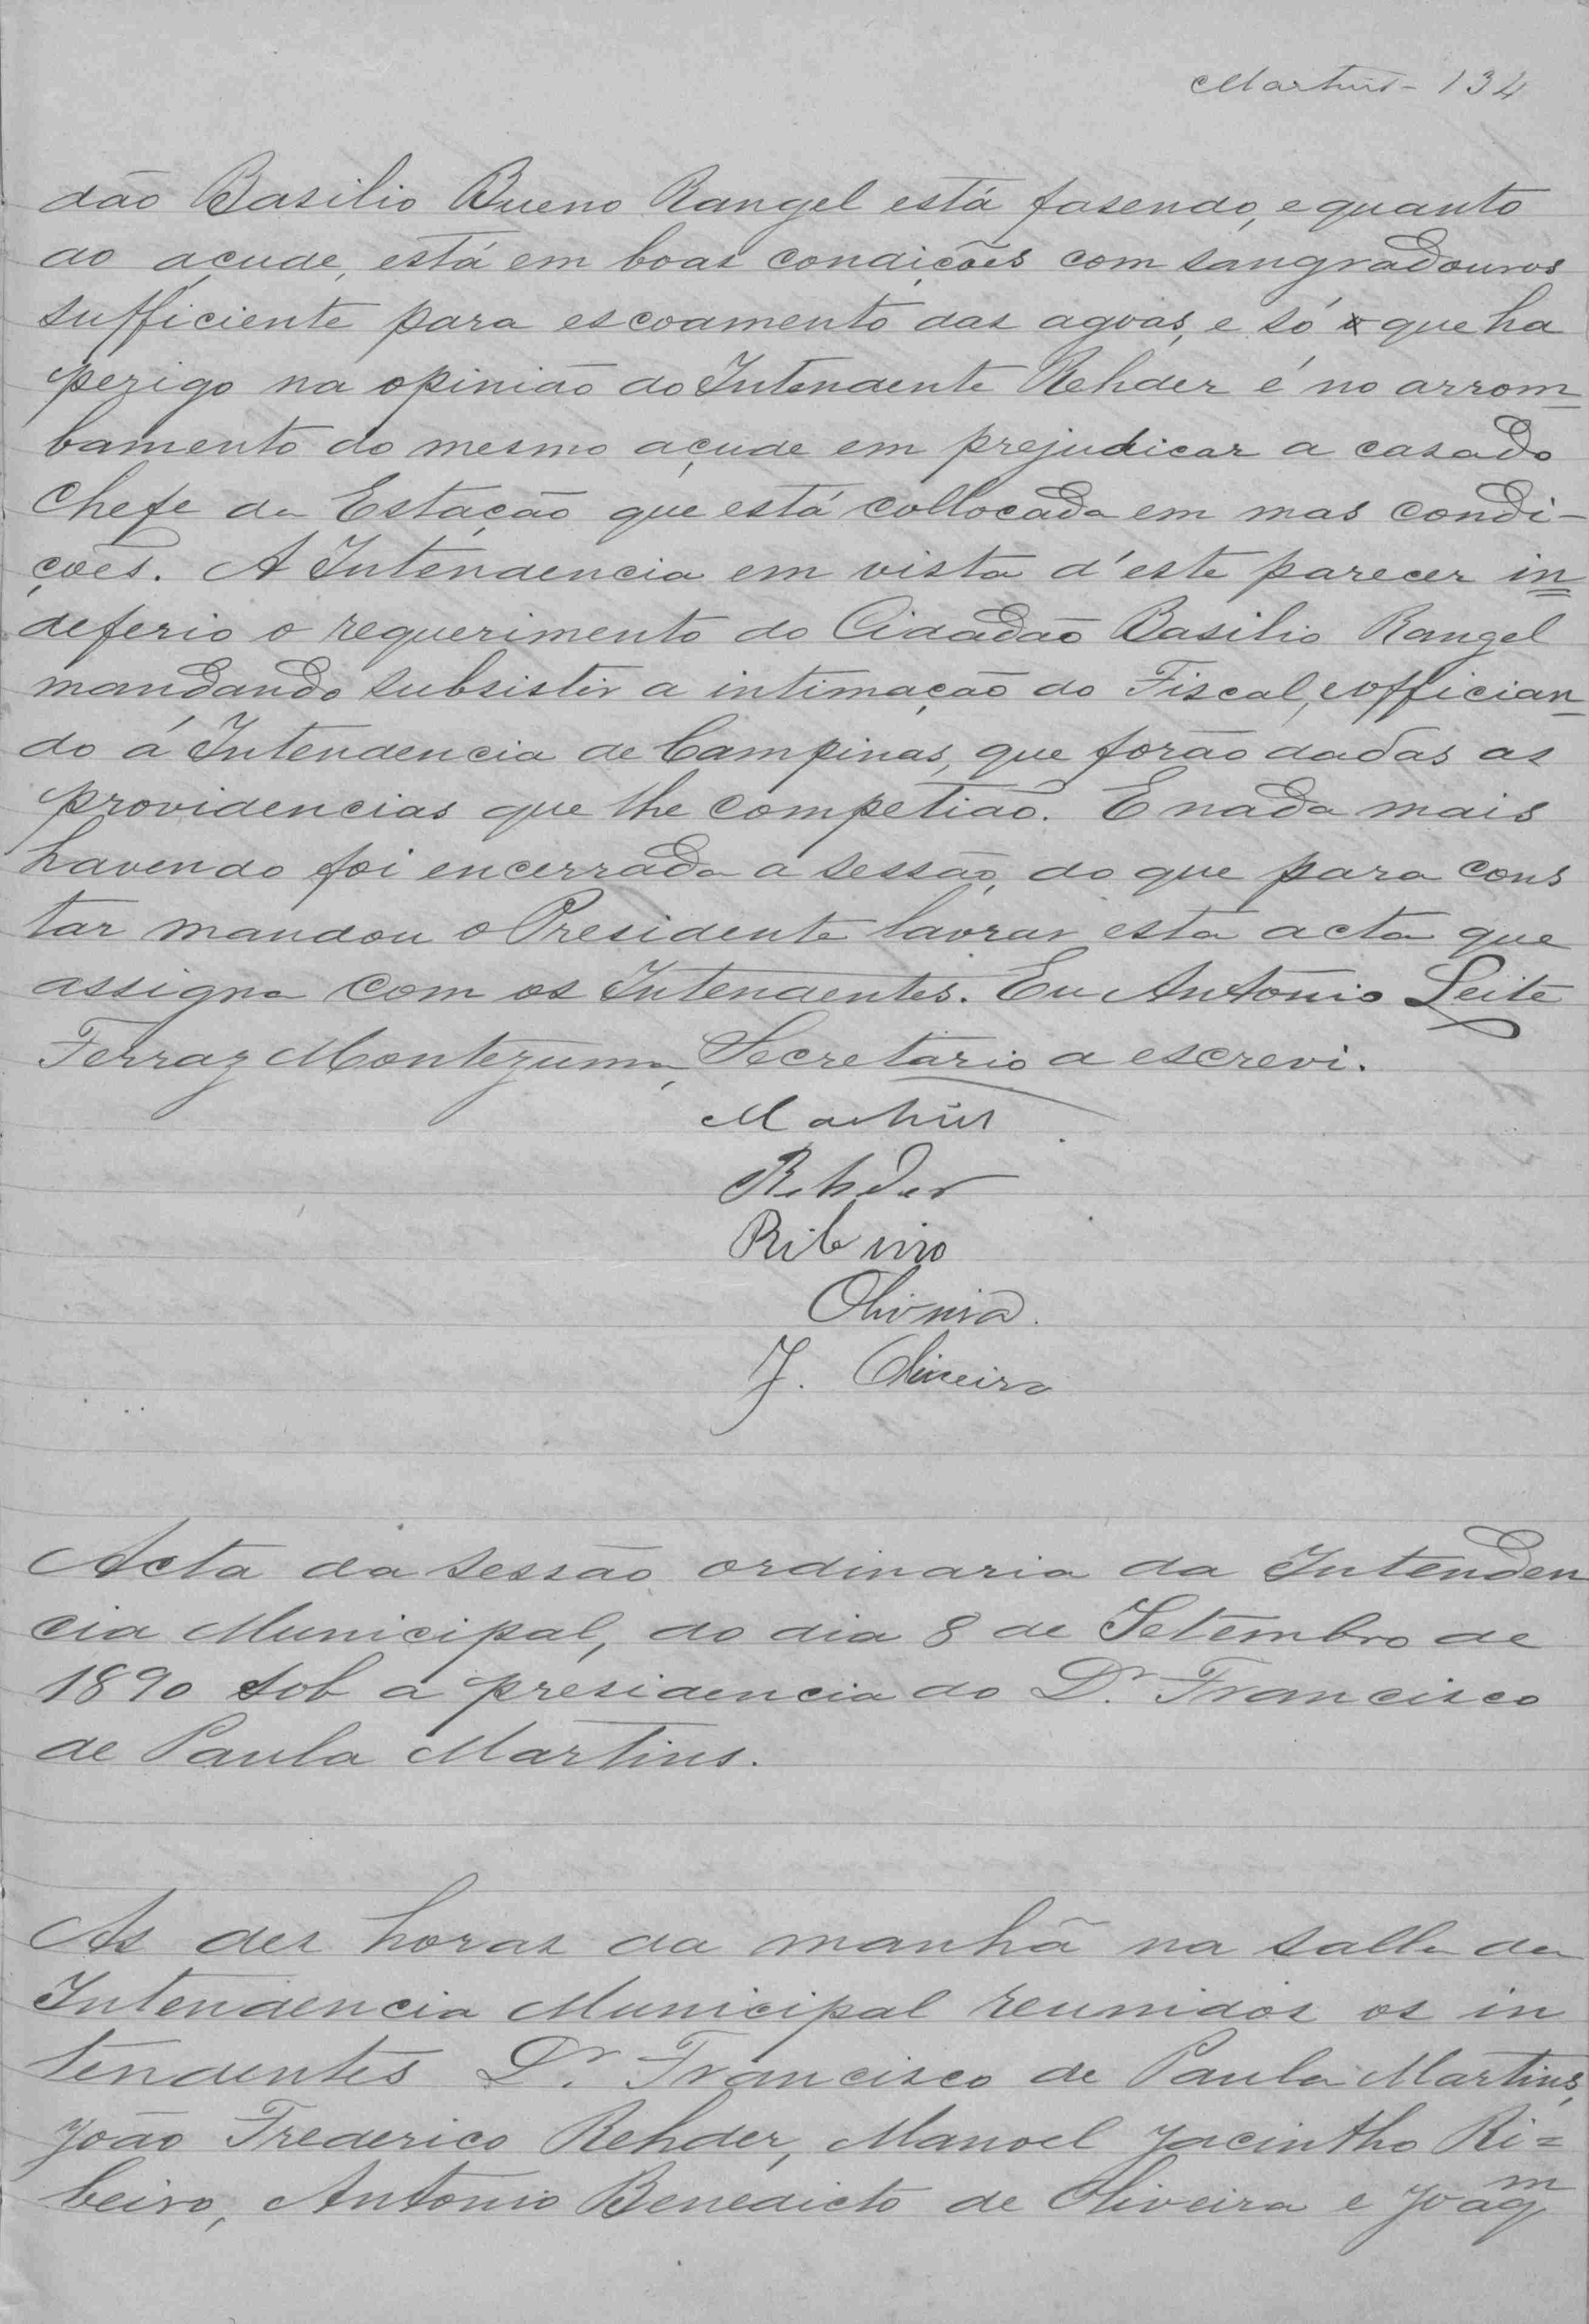 Martins - 134
dão Basilio Bueno Rangel está fasendo, e quanto
ao açude, está em boas condições com sangradouros
sufficiente para escoamento das agoas, e só que ha
perigo na opinião do Intendente Rehder é no arrom
bamento do mesmo açude em prejudicar a casa do
Chefe da Estação que está collocada em mas condi-
ções. A Intendencia em vista d'este parecer in
deferio o requerimento do Cidadão Basilio Rangel
mandando subsistir a intimação do Fiscal, e offician
do á Intendencia de Campinas, que forão dadas as
providencias que lhe competião. E nada mais
havendo foi encerrada a sessão, do que para cons
tar mandou o Presidente lavrar esta acta que
assigna com os Intendentes. Eu Antonio Leite
Ferraz Montezuma, Secretario a escrevi.
Martins
Rehder
Ribeiro
Oliveira.
J. Oliveira
Acta da sessão ordinaria da Intenden
cia Municipal, do dia 8 de Setembro de
1890 sob a presidencia do Dr. Francisco
de Paula Martins.
As des horas da manhã na salla da
Intendencia Municipal reunidos os in
tendentes Dr. Francisco de Paula Martins,
João Frederico Rehder, Manoel Jacintho Ri=
beiro, Antonio Benedicto de Oliveira e Joaqm